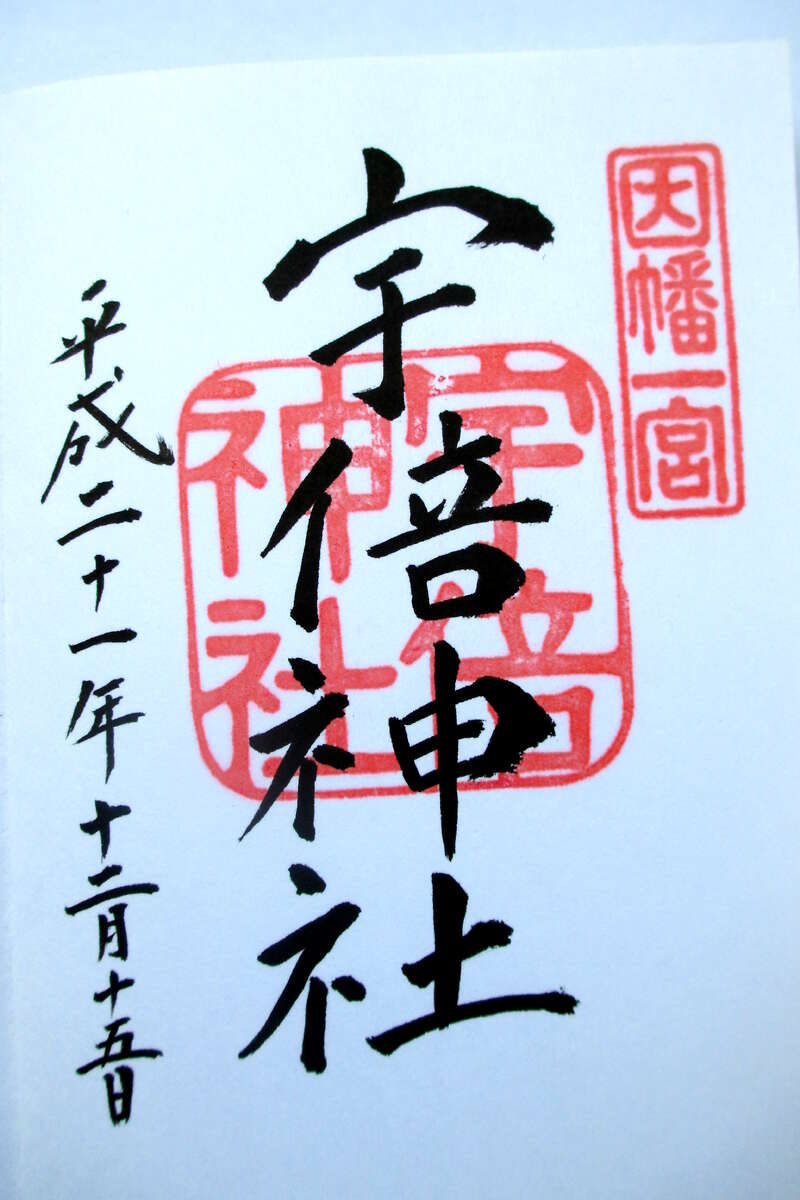 因幡一宮
宇倍神社
宇倍
神社
平成二十一年十二月十五日